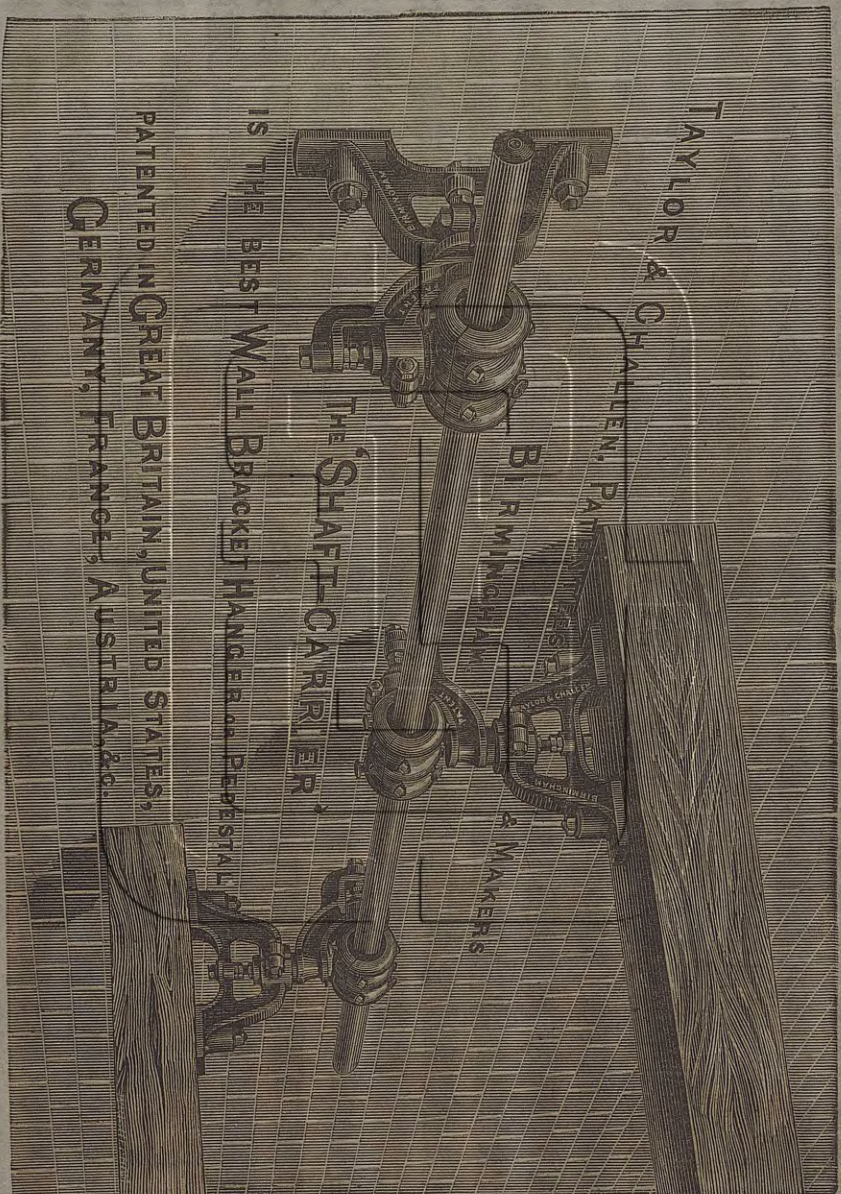 TAYLOR & CHALLEN, PATENTEES
& MAKERS
BIRMINGHAM.
THE 'SHAFT-CARRIER'
IS THE BEST WALL BRACKET HANGER OR PEDESTAL
PATENTED IN GREAT BRITAIN, UNITED STATES,
GERMANY, FRANCE, AUSTRIA, &c.
BIRMINGHAM
PATENT
TAYLOR & CHALLEN
PATENT
BIRMINGHAM